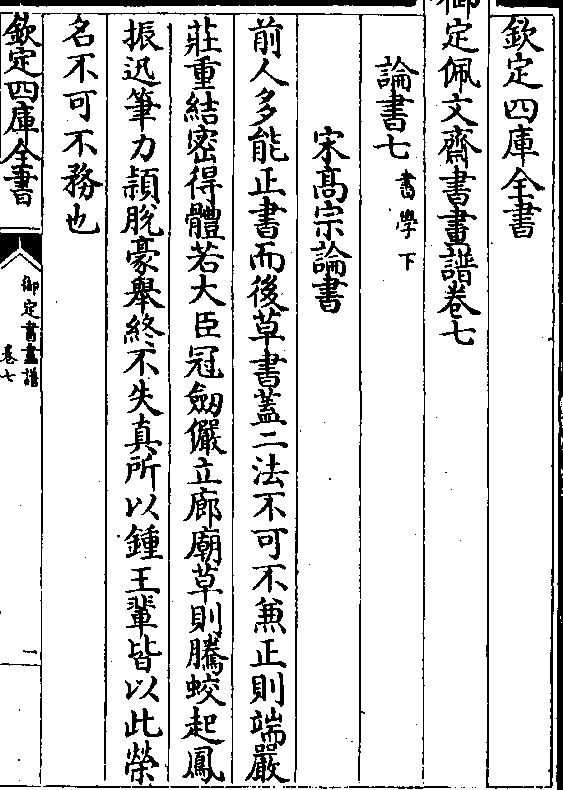 欽定四庫全書
御定佩文齋書畫譜卷七
論書七 書學下
宋高宗論書
前人多能正書而後草書蓋二法不可不兼正則端嚴
莊重結密得體若大臣冠劒儼立廊廟草則騰蛟起鳳
振迅筆力頴脫豪舉終不失真所以鍾王輩皆以此榮
名不可不務也
欽定四庫全書
御定書畫譜
卷七
一